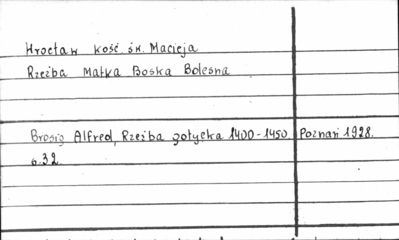 Wrocław kość św. Macieja
Rzeźba Matka Boska Bolesna
Brosig Alfred, Rzeźba gotycka 1400-1450 Poznań 1928.
s.32.